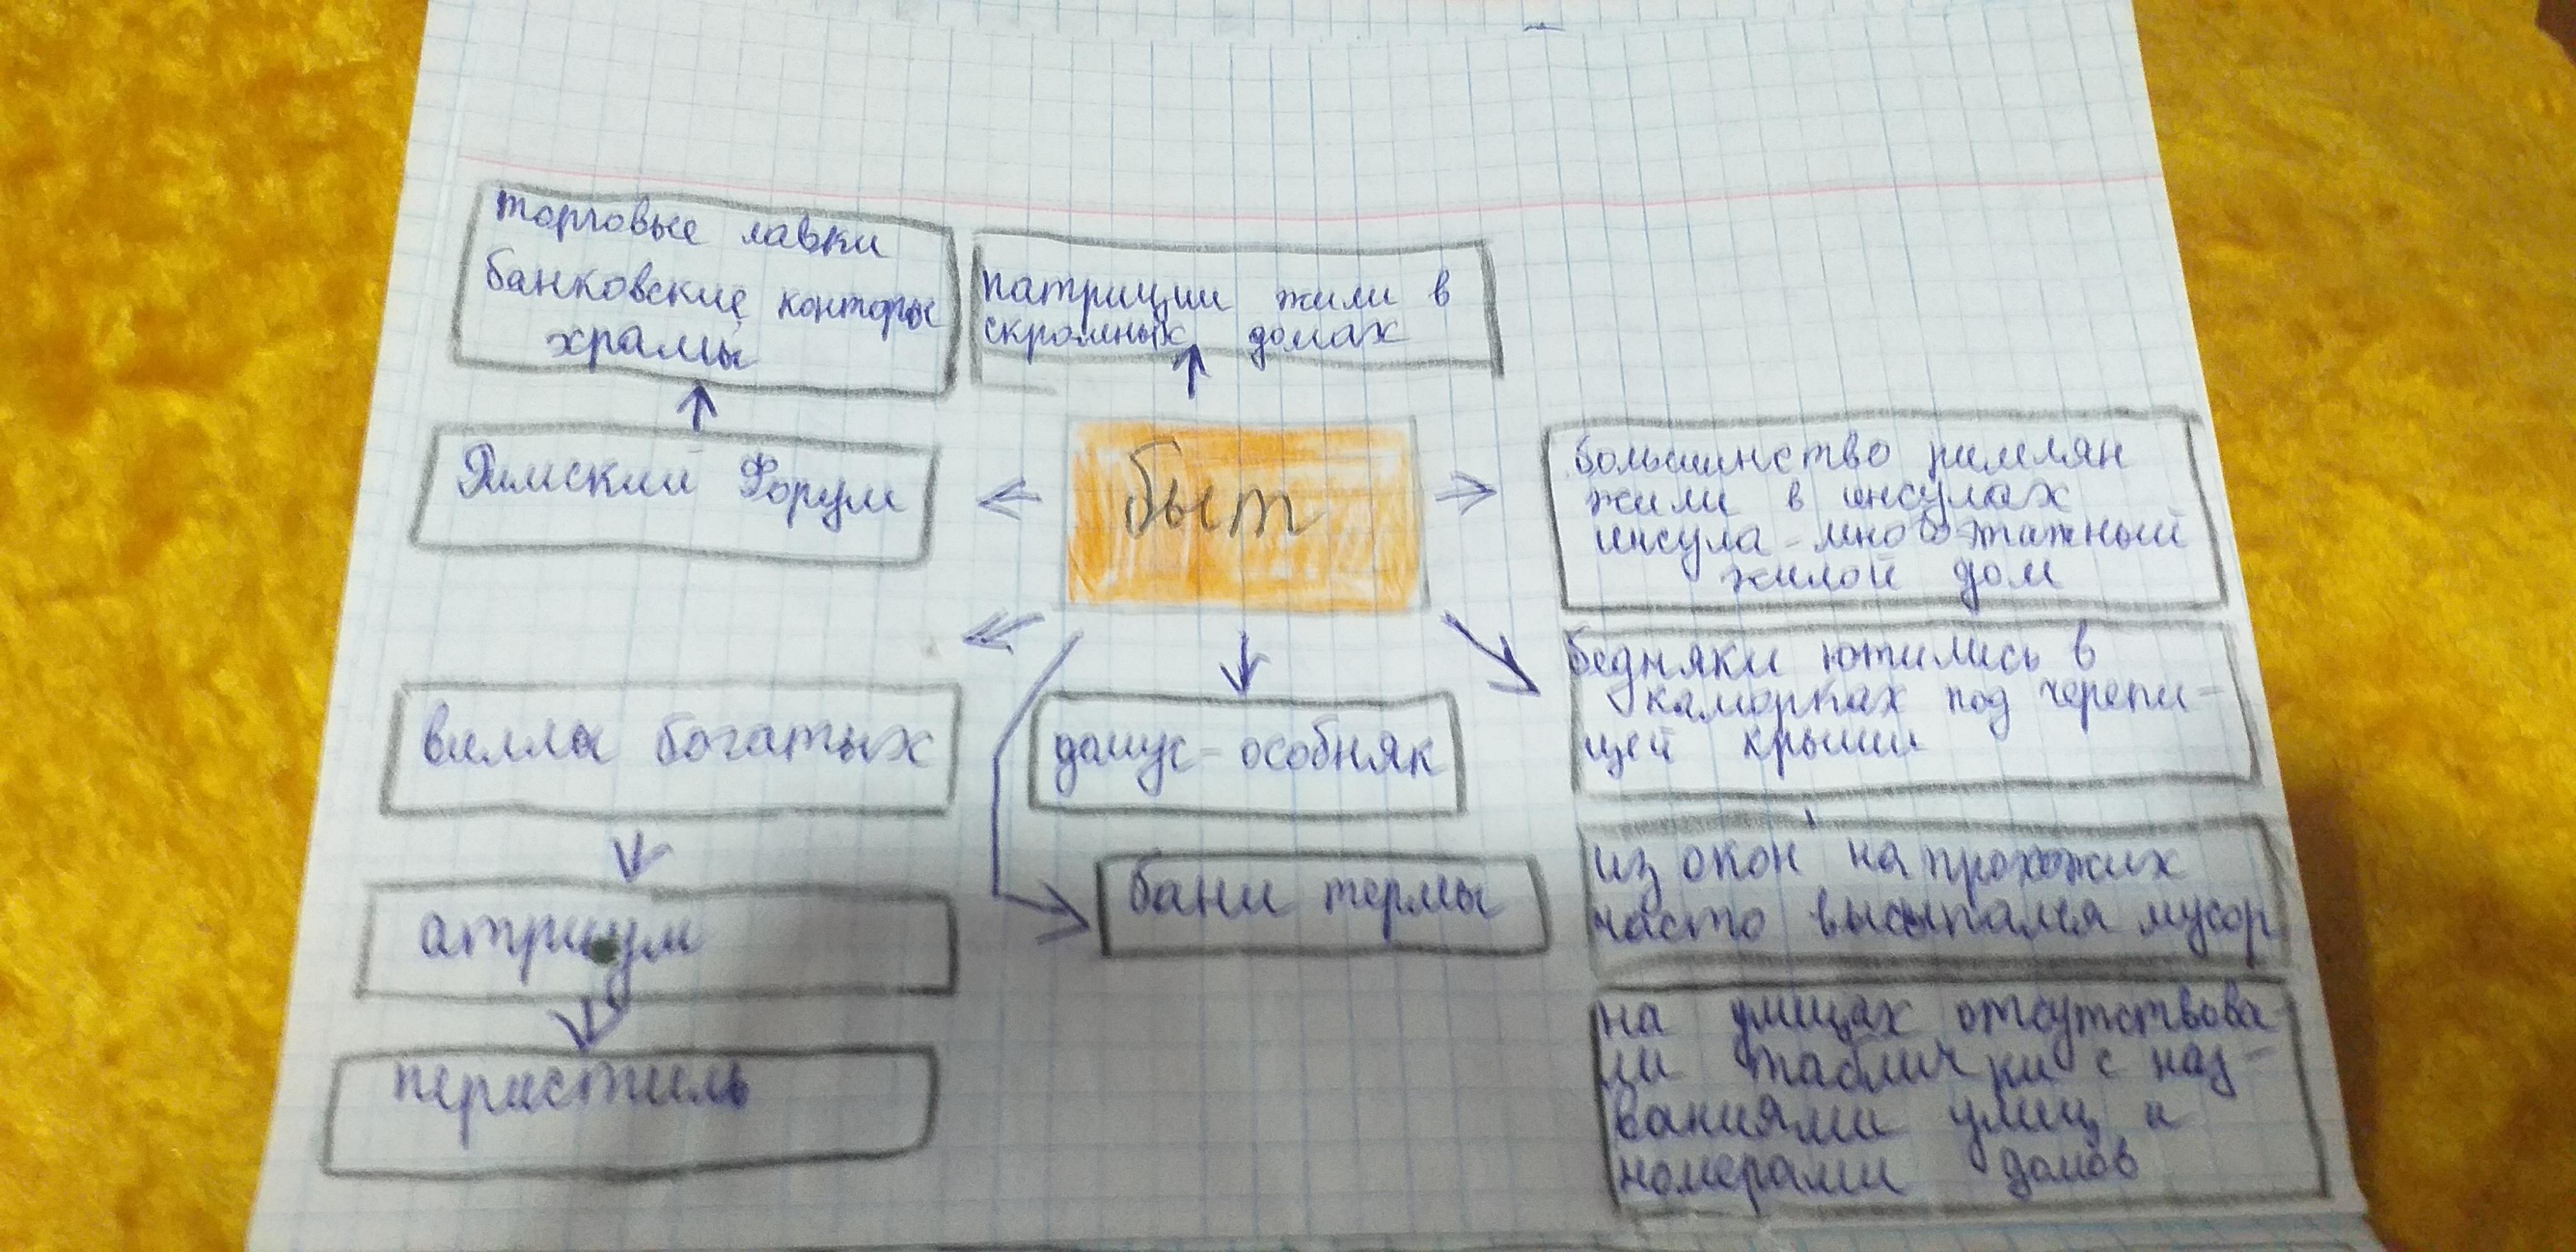 торговые лавки
банковские конторы
храмы
патриции жили в
скромных домах
Римский Форум
быт
большинство римлян
жили в инсулах
инсула - многоэтажный
жилой дом
бедняки ютились в
каморках под черепи-
цей крыши
вилла богатых
домус - особняк
бани термы
из окон на прохожих
часто высыпался мусор
атриум
перистиль
на улицах отсутствова
ли таблички с наз-
ваниями улиц и
номерами домов